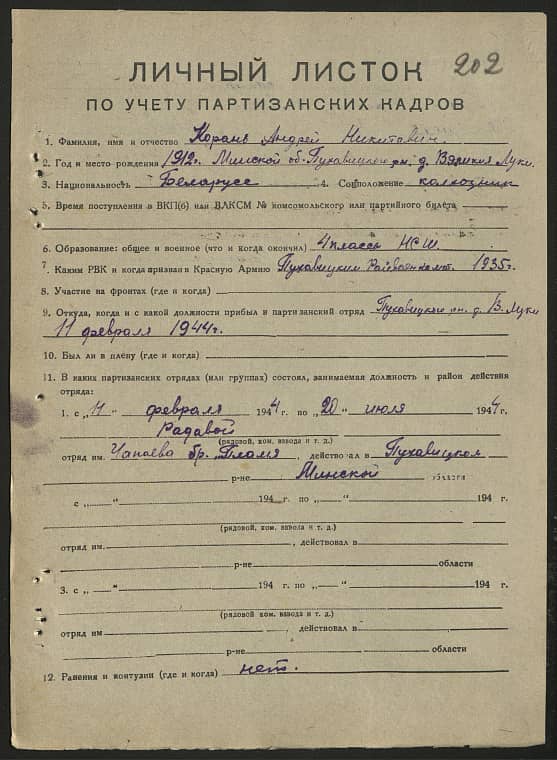 202
ЛИЧНЫЙ ЛИСТОК
ПО УЧЕТУ ПАРТИЗАНСКИХ КАДРОВ
1. Фамилия, имя и отчество Корань Андрей Никитавич
2. Год и место рождения 1912г. Минской об. Пухавицкого рн. д. Вяликия Луки
3. Национальность Беларусс 4. Соцположение колхозник
5. Время поступления в ВКП(б) или ВЛКСМ № комсомольского или партийного билета
6. Образование: общее и военное (что и когда окончил) 4 классы НСШ
7. Каким РВК и когда призван в Красную Армию Пухавицким 1935г.
8. Участие на фронтах (где и когда)
9. Откуда, когда и с какой должности прибыл в партизанский отряд Пухавицкого рн. д. В. Луки
11 февраля 1944г.
10. Был ли в плену (где и когда)
11. В каких партизанских отрядах (или группах) состоял, занимаемая должность и район действия
отряда:
1. с „11" февраля 1944 г. по „20" июля 1944 г.
Радавой
(рядовой, ком. взвода и т. д.)
отряд им. Чапаева бр. Пламя, действовал в Пухавицком
р-не Минской области
с „ " 194 г. по „ " 194 г.
(рядовой, ком. взвода и т. д.)
отряд им. , действовал в
р-не области
3. с „ " 194 г. по „ " 194 г.
(рядовой, ком. взвода и т. д.)
отряд им. , действовал в
р-не области
12. Ранения и контузии (где и когда) нет.